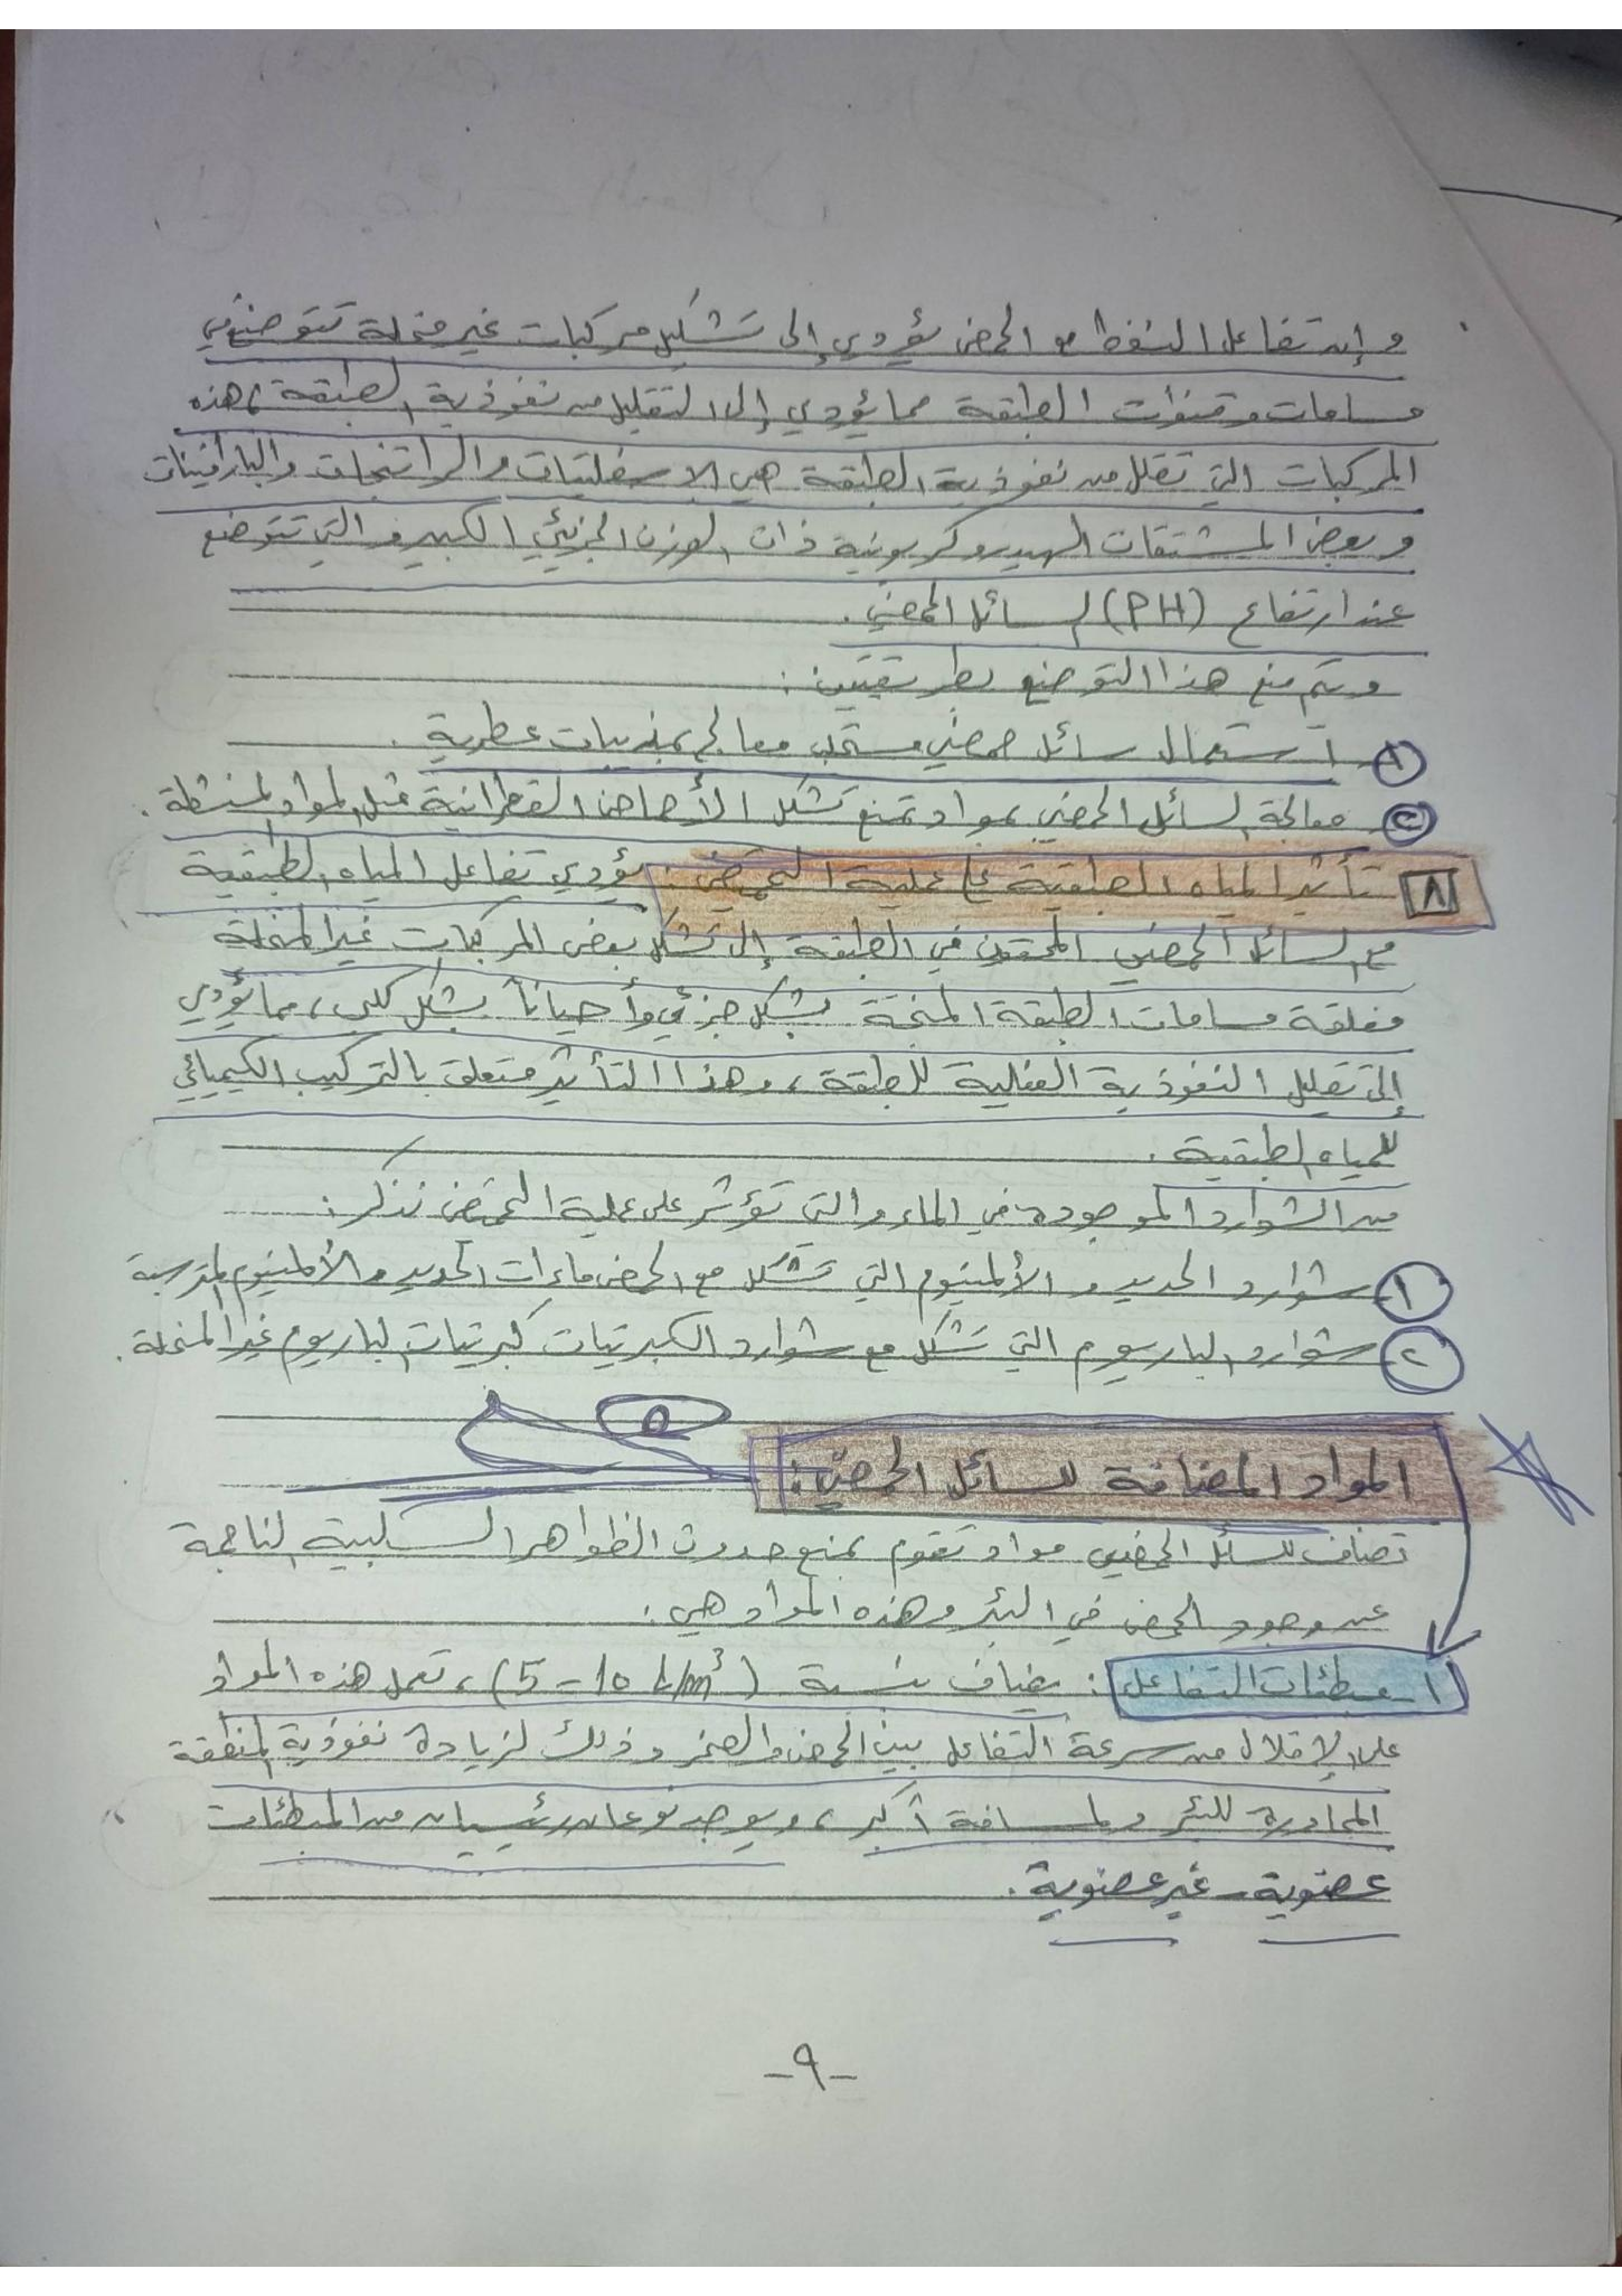 وإن تفاعل النفط مع الحمض يؤدي إلى تشكيل مركبات غير منحلة تتوضع في
مسامات وقنوات الطبقة مما يؤدي إلى التقليل من نفوذية الطبقة، هذه
المركبات التي تقلل من نفوذية الطبقة هي الاسفلتيات والراتنجات والبارافينات
وبعض المشتقات الهيدروكربونية ذات الوزن الجزيئي الكبير والتي تتوضع
عند ارتفاع (PH) السائل الحمضي.
ويتم منع هذا التوضع بطريقتين:
١- استعمال سائل حمضي مستحلب معالج بمذيبات عطرية.
٢- معالجة السائل الحمضي بمواد تمنع تشكل الأحماض القطرانية مثل المواد المنشطة.
٨ تأثير المياه الطبقية على عملية التحميض: يؤدي تفاعل المياه الطبقية
مع السائل الحمضي المحقون في الطبقة إلى تشكل بعض المركبات غير المنحلة
مغلقة مسامات الطبقة المنتجة بشكل جزئي وأحياناً بشكل كلي، مما يؤدي
إلى تقليل النفوذية الفعلية للطبقة، وهذا التأثير متعلق بالتركيب الكيميائي
للمياه الطبقية.
من الشوارد الموجودة في الماء والتي تؤثر على عملية التحميض نذكر:
١- شوارد الحديد والألمنيوم التي تشكل مع الحمض ماءات الحديد والألمنيوم المترسبة
٢- شوارد الباريوم التي تشكل مع شوارد الكبريتات كبريتات الباريوم غير المنحلة.
٥
المواد المضافة للسائل الحمضي:
تضاف للسائل الحمضي مواد تقوم بمنع حدوث الظواهر السلبية الناجمة
عن وجود الحمض في البئر وهذه المواد هي:
١- مبطئات التفاعل: يضاف بنسبة (5-10 L/m³)، تعمل هذه المواد
على الإقلال من سرعة التفاعل بين الحمض والصخر وذلك لزيادة نفوذية المنطقة
المجاورة للبئر ولمسافة أكبر، ويوجد نوعان رئيسيان من المبطئات
عضوية - غير عضوية.
-٩-